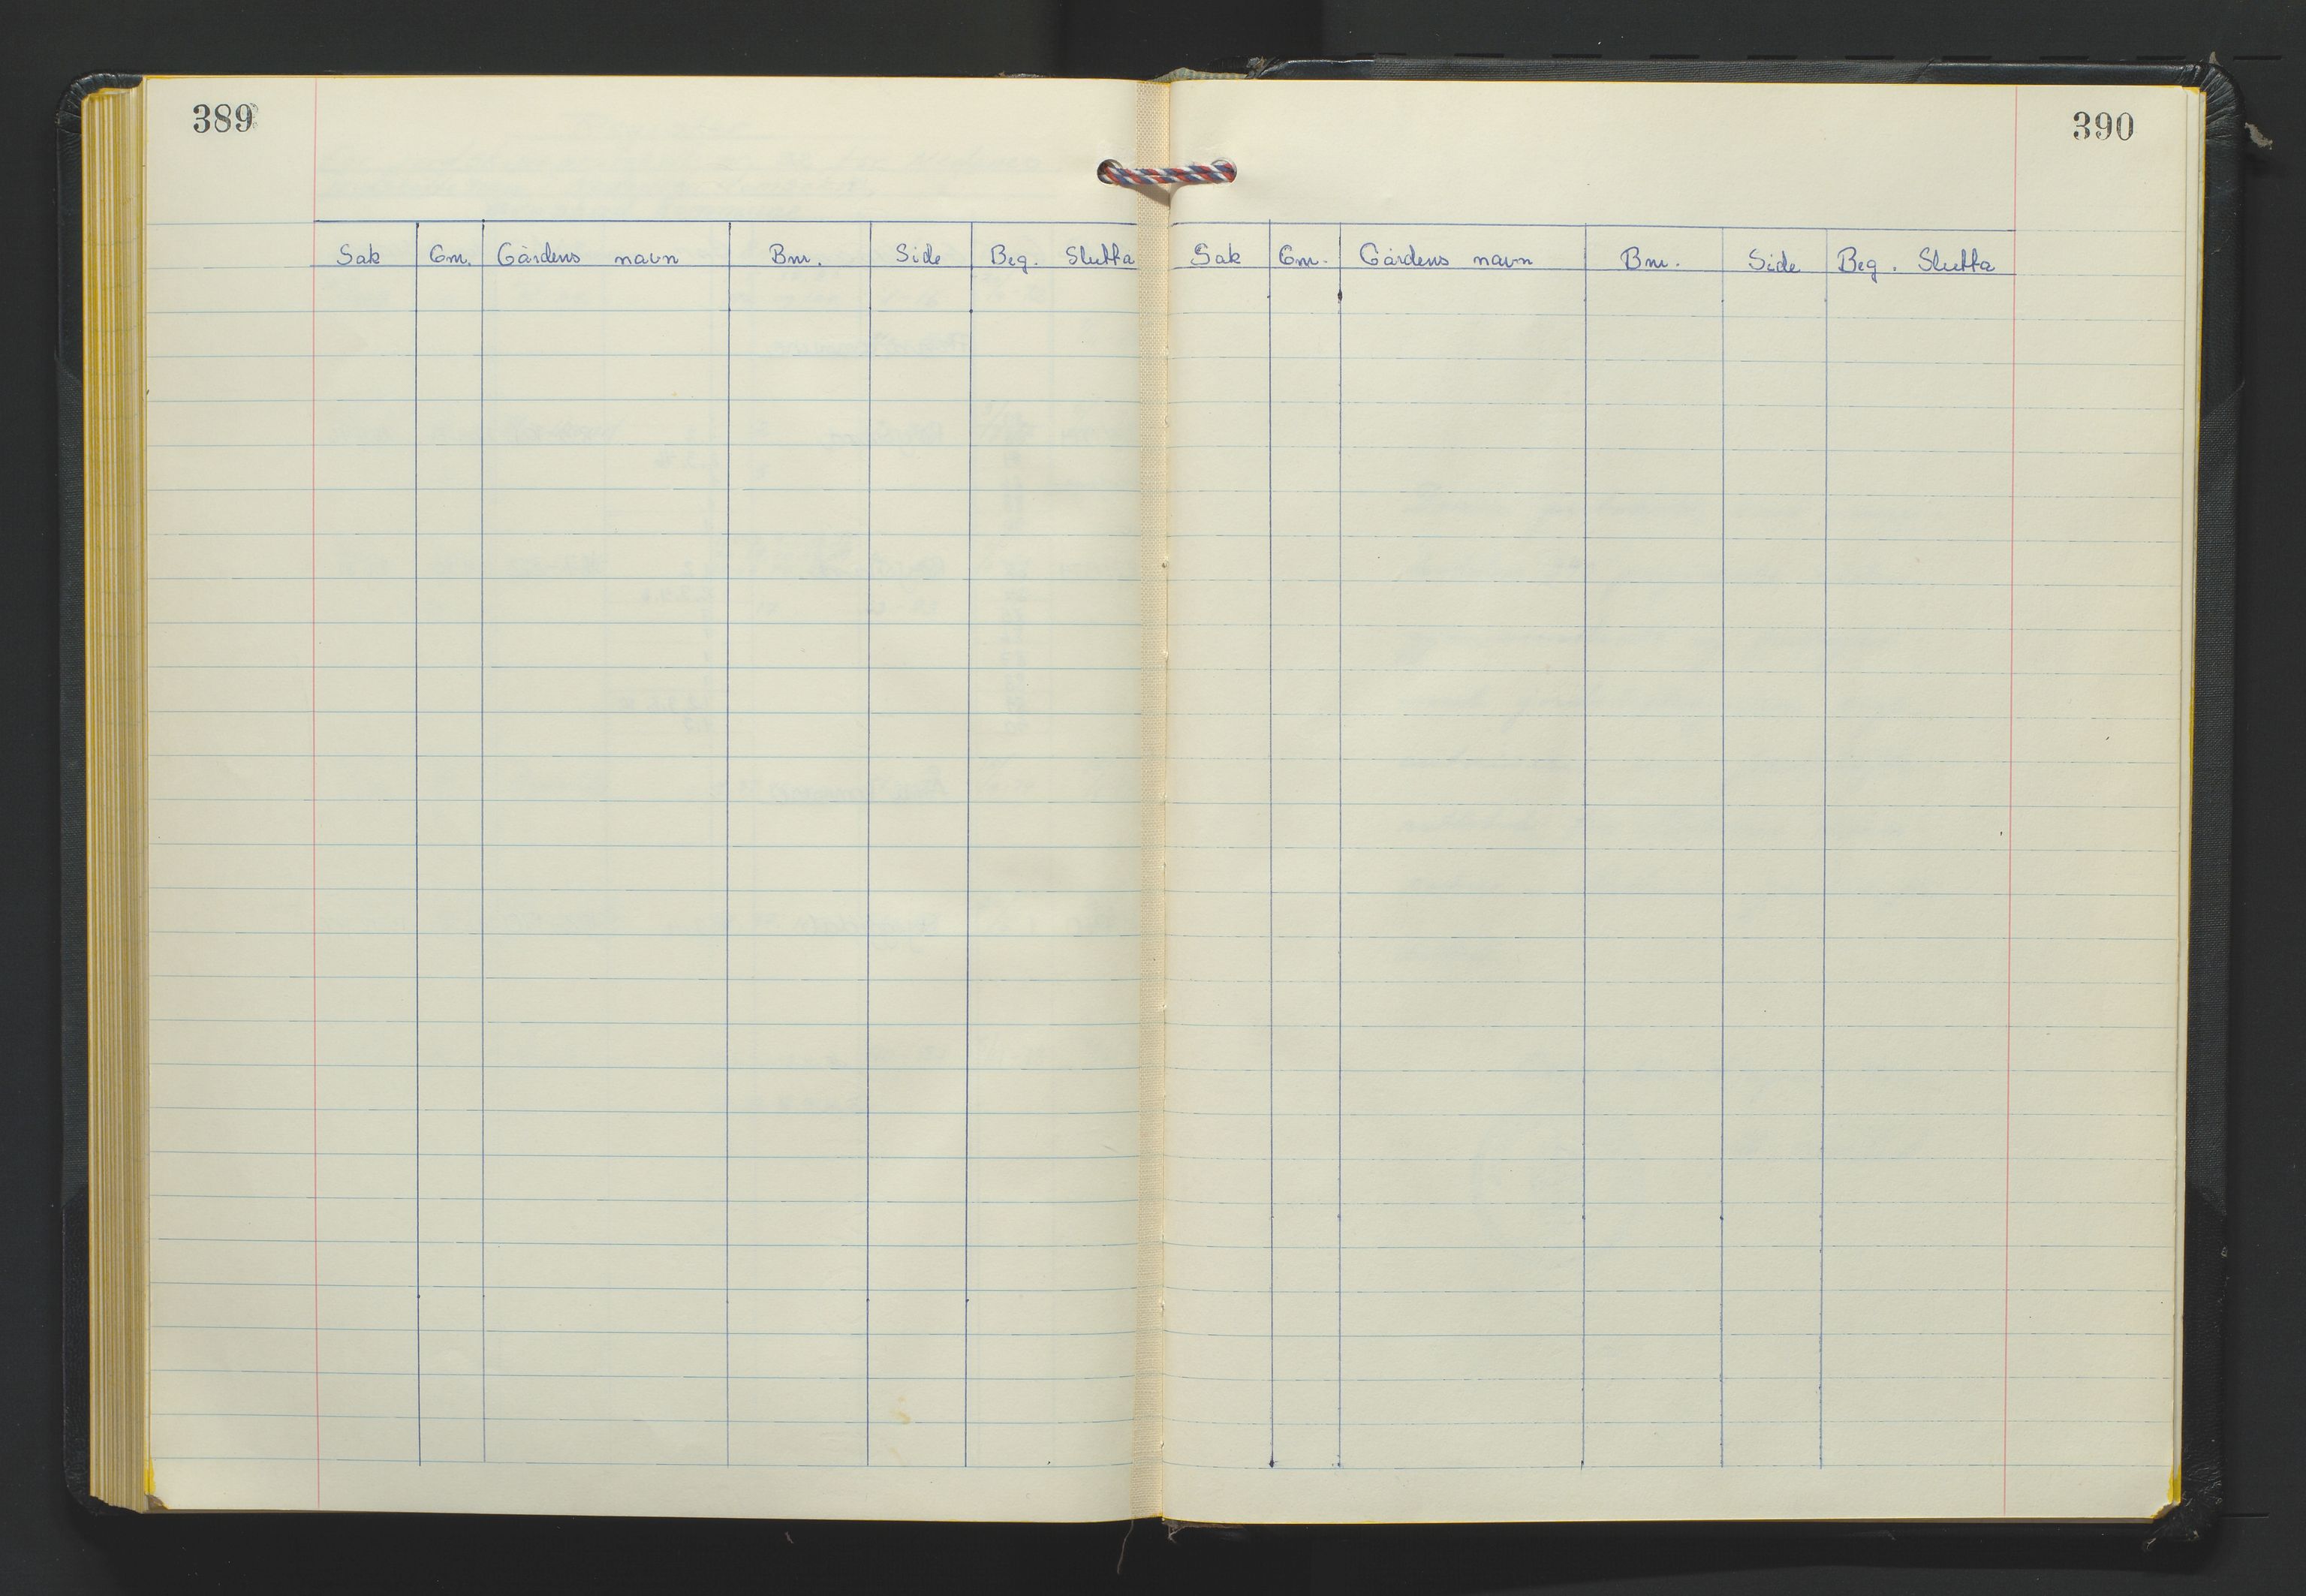 389
Sak Gnr. Gårdens navn Bnr. Side Beg. Slutta
390
Sak Gnr. Gårdens navn Bnr. Side Beg. Slutta